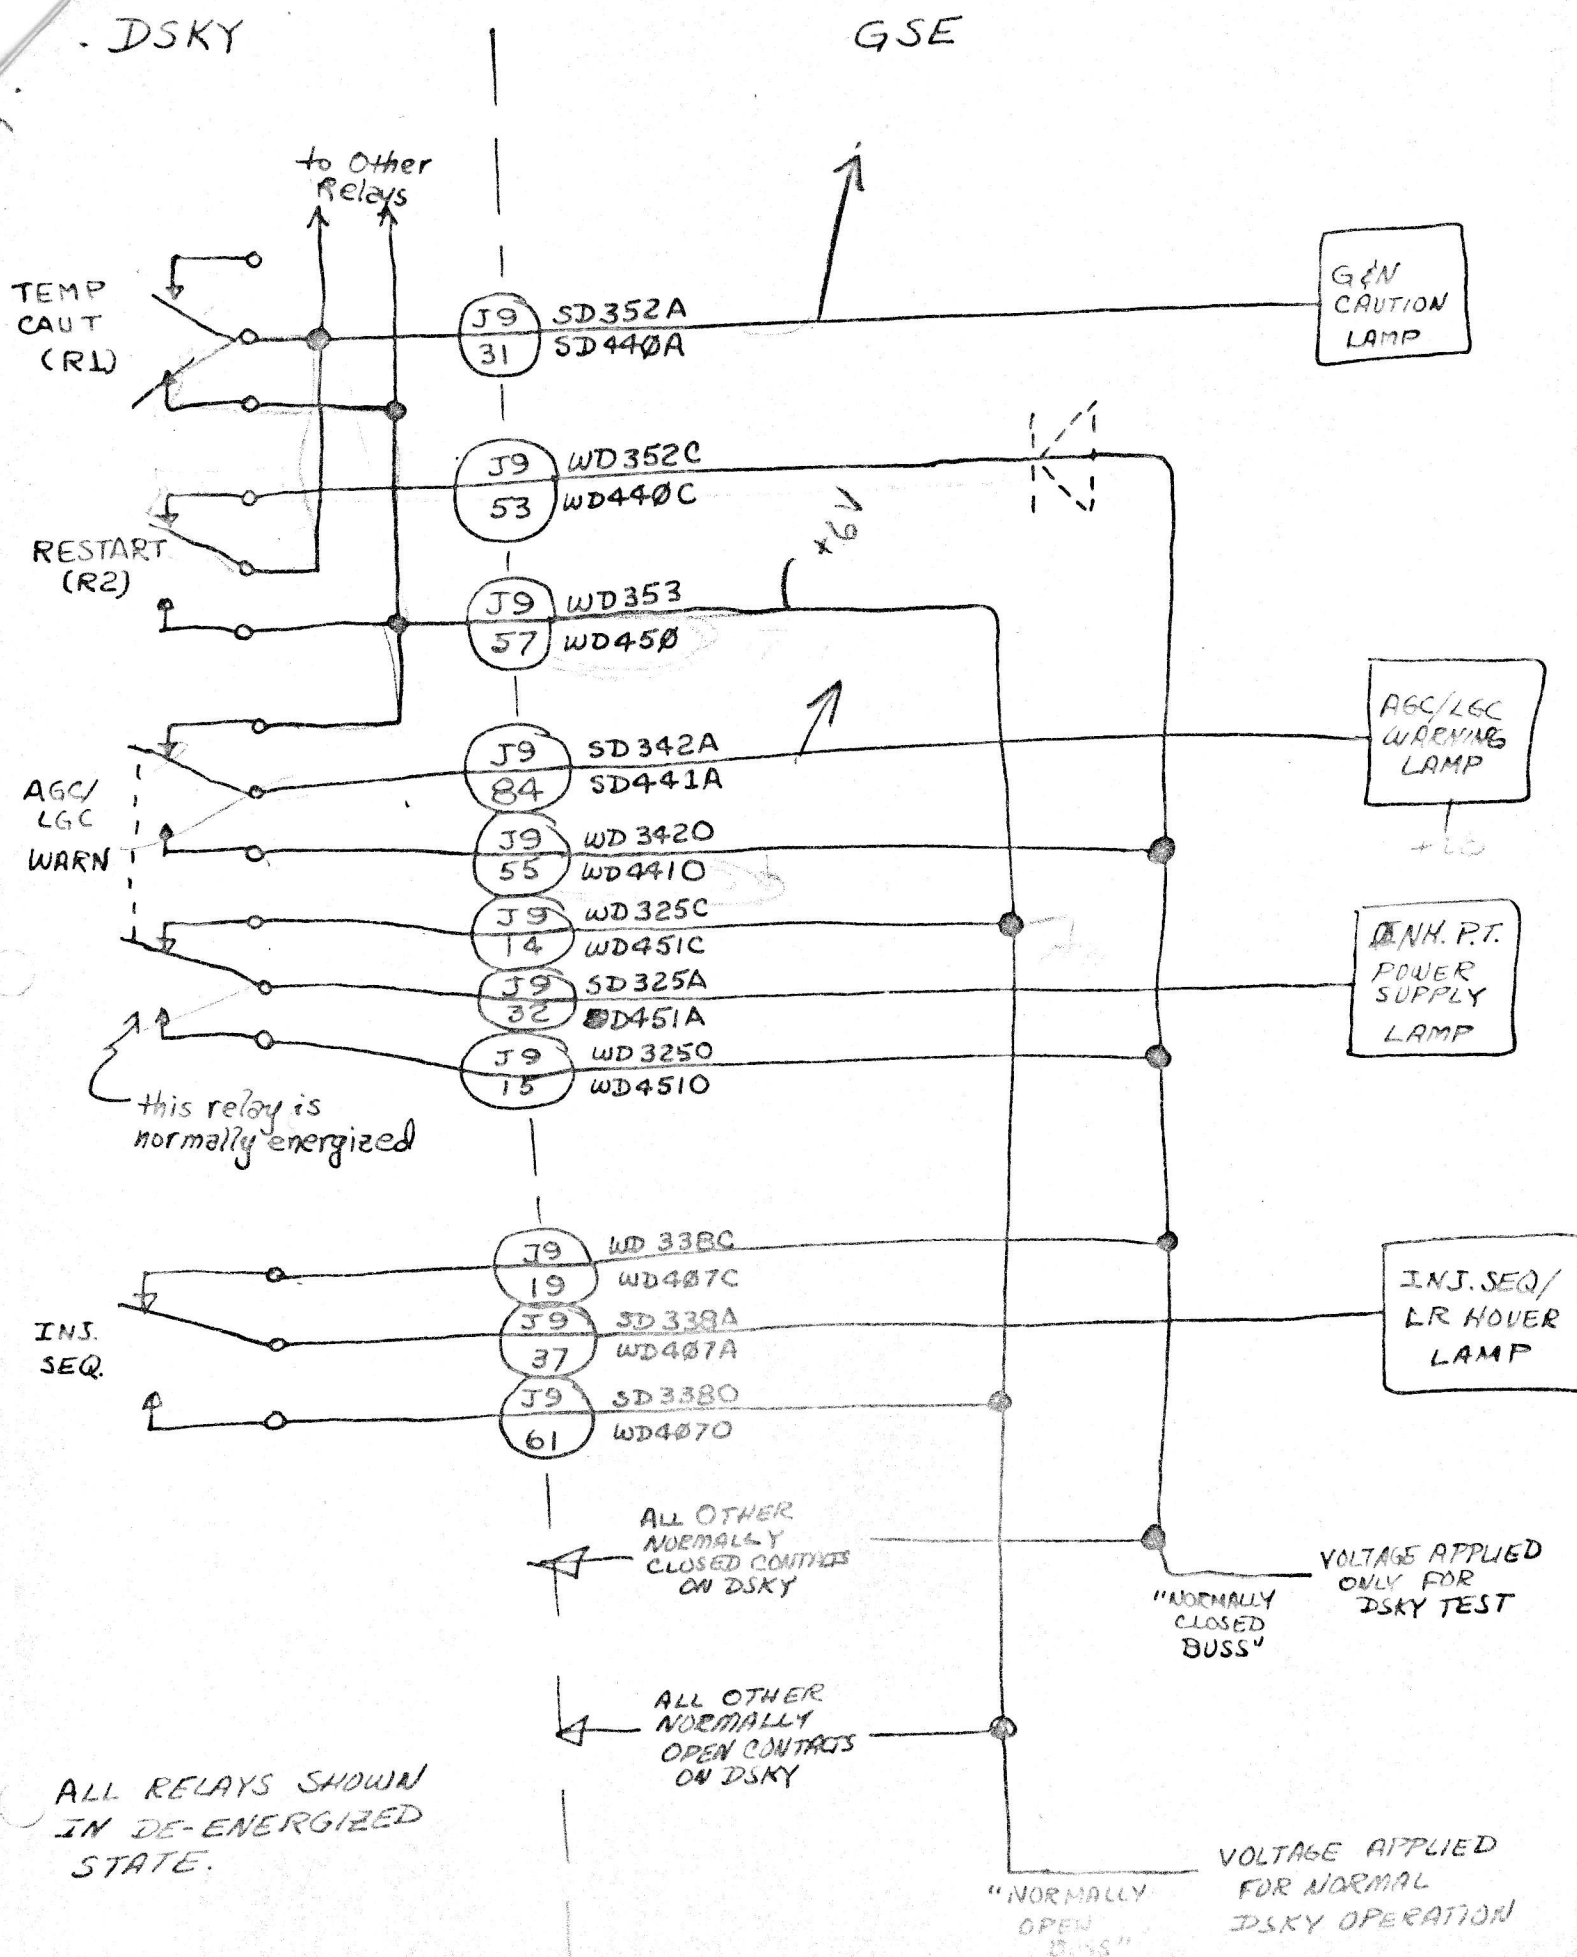 . DSKY
GSE
to Other
Relays
TEMP
CAUT
(R1)
J9
31
SD352A
SD440̸A
G&N
CAUTION
LAMP
J9
53
WD352C
WD440̸C
RESTART
(R2)
+6V
J9
57
WD353
WD450̸
AGC/
LGC
WARN
J9
84
SD342A
SD441A
AGC/LGC
WARNING
LAMP
J9
55
WD342O
WD441O
J9
14
WD325C
WD451C
J9
32
SD325A
D451A
INH. P.T.
POWER
SUPPLY
LAMP
J9
15
WD325O
WD451O
this relay is
normally energized
J9
19
WD338C
WD40̸7C
INJ.
SEQ.
J9
37
SD338A
WD40̸7A
INJ. SEQ/
LR HOVER
LAMP
J9
61
SD338O
WD40̸7O
ALL OTHER
NORMALLY
CLOSED CONTACTS
ON DSKY
"NORMALLY
CLOSED
BUSS"
VOLTAGE APPLIED
ONLY FOR
DSKY TEST
ALL OTHER
NORMALLY
OPEN CONTACTS
ON DSKY
ALL RELAYS SHOWN
IN DE-ENERGIZED
STATE.
"NORMALLY
OPEN
BUSS"
VOLTAGE APPLIED
FOR NORMAL
DSKY OPERATION